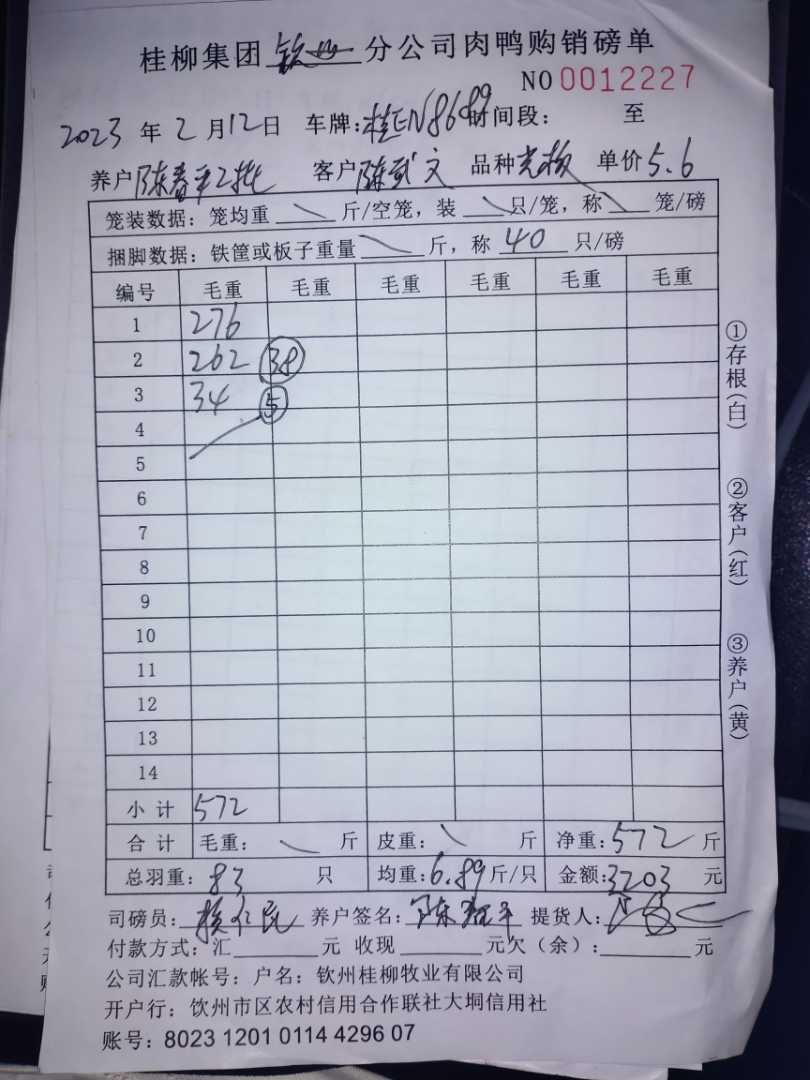 桂柳集团 钦州 分公司肉鸭购销磅单
NO 0012227
2023 年 2 月 12 日 车牌:桂EN8689 时间段: 至
养户 陈春平2批 客户 陈武文 品种 单价 5.6
笼装数据: 笼均重 斤/空笼, 装 只/笼, 称 笼/磅
捆脚数据: 铁筐或板子重量 斤, 称 40 只/磅
编号 毛重 毛重 毛重 毛重 毛重 毛重
1 276
2 262 38
3 34 5
4
5
6
7
8
9
10
11
12
13
14
小 计 572
合 计 毛重: 斤 皮重: 斤 净重: 572 斤
总羽重: 83 只 均重: 6.89 斤/只 金额: 3203 元
司磅员: 养户签名: 提货人:
付款方式: 汇 元 收现 元欠(余): 元
公司汇款帐号: 户名: 钦州桂柳牧业有限公司
开户行: 饮州市区农村信用合作联社大垌信用社
账号: 8023 1201 0114 4296 07
①存根(白)
②客户(红)
③养户(黄)